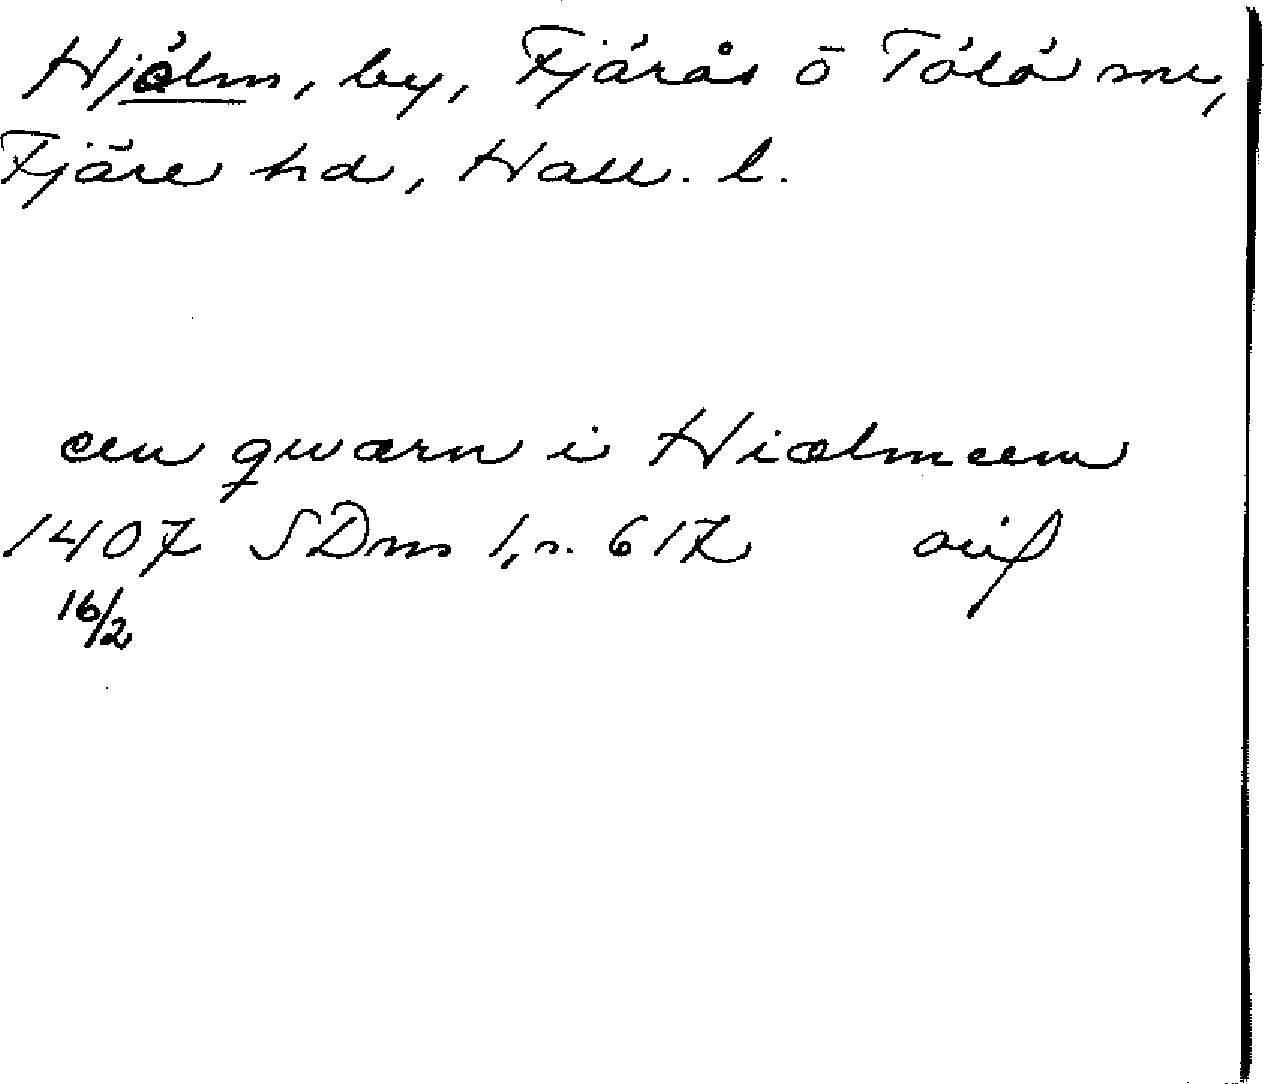 Hjälm, by, Fjärås o Tölö snr,
Fjäre hd, Hall. l.
een qwærn i Hiælmeem
1407 SDns 1, s. 617 orig
16/2